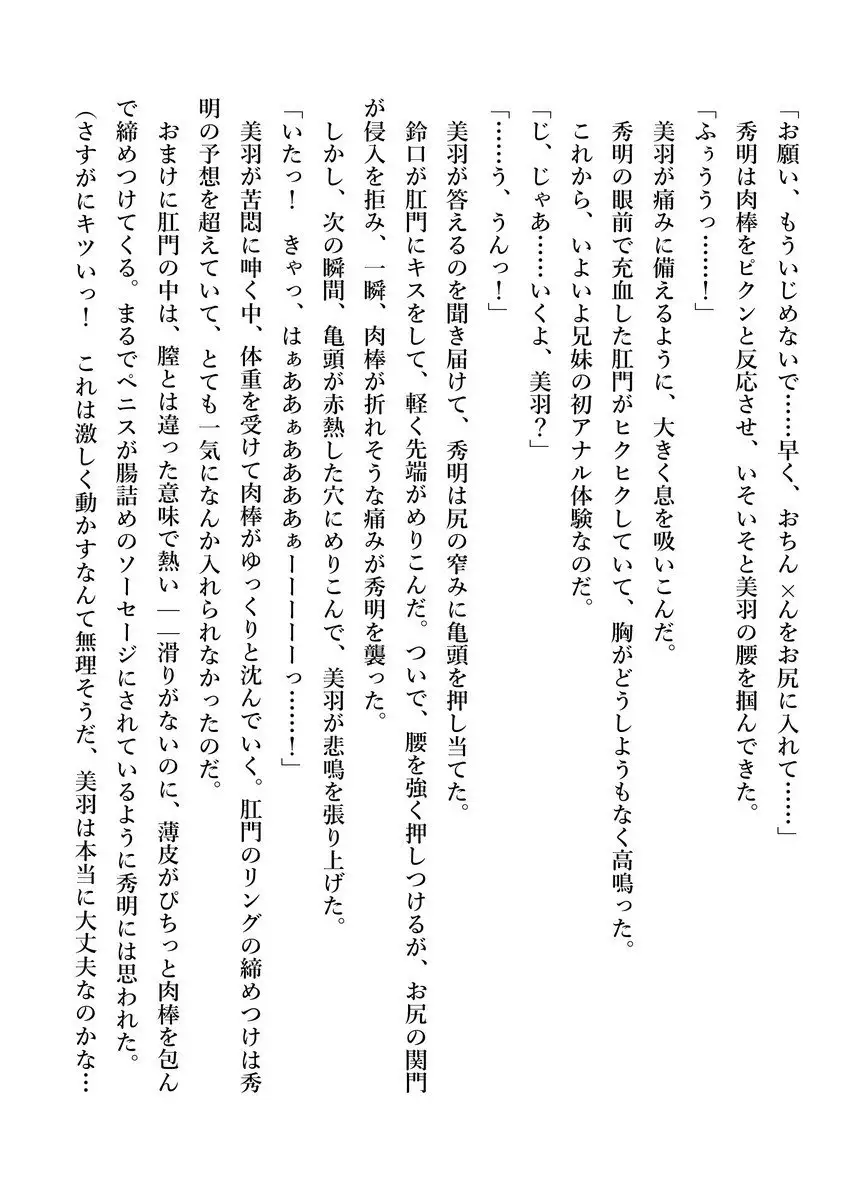 「お願い、もういじめないで……早く、おちん×んをお尻に入れて……」
　秀明は肉棒をピクンと反応させ、いそいそと美羽の腰を掴んできた。
「ふぅううっ……！」
　美羽が痛みに備えるように、大きく息を吸いこんだ。
　秀明の眼前で充血した肛門がヒクヒクしていて、胸がどうしようもなく高鳴った。
　これから、いよいよ兄妹の初アナル体験なのだ。
「じ、じゃあ……いくよ、美羽？」
「……う、うんっ！」
　美羽が答えるのを聞き届けて、秀明は尻の窄みに亀頭を押し当てた。
　鈴口が肛門にキスをして、軽く先端がめりこんだ。ついで、腰を強く押しつけるが、お尻の関門
が侵入を拒み、一瞬、肉棒が折れそうな痛みが秀明を襲った。
　しかし、次の瞬間、亀頭が赤熱した穴にめりこんで、美羽が悲鳴を張り上げた。
「いたっ！　きゃっ、はぁああぁああああぁーーーーーっ……！」
　美羽が苦悶に呻く中、体重を受けて肉棒がゆっくりと沈んでいく。肛門のリングの締めつけは秀
明の予想を超えていて、とても一気になんか入れられなかったのだ。
　おまけに肛門の中は、膣とは違った意味で熱い――滑りがないのに、薄皮がぴちっと肉棒を包ん
で締めつけてくる。まるでペニスが腸詰めのソーセージにされているように秀明には思われた。
（さすがにキツいっ！　これは激しく動かすなんて無理そうだ、美羽は本当に大丈夫なのかな…